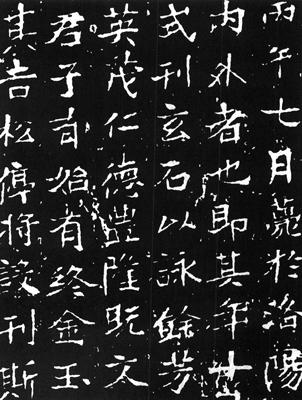 丙午七日薨於洛陽
内外者也即其年
式刊玄石以詠餘芳
英茂仁德豊隆既文
君子有始有終金玉
其吉松停將設刊斯